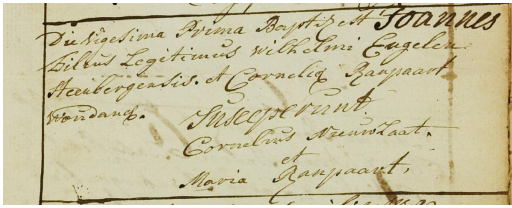 Die Vigesima Prema Baptiz est Joannes
Filius Legitimus Wilhelmi Engelen
Steenbergensis. et Corneliæ Raapaart
Woudanæ.
Susceperunt
Cornelius Nieuwlaat.
et
Maria Raapaart.